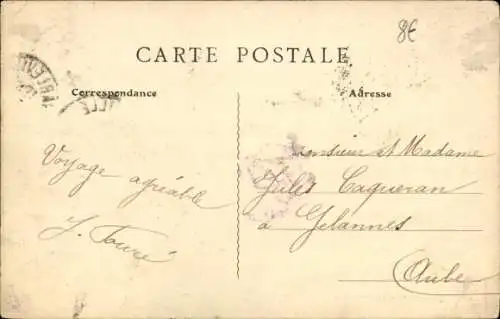 8€
CARTE POSTALE
Correspondance
Adresse
Voyage agréable
Monsieur et Madame
Jules Caqueran
à Gélannes
Aube